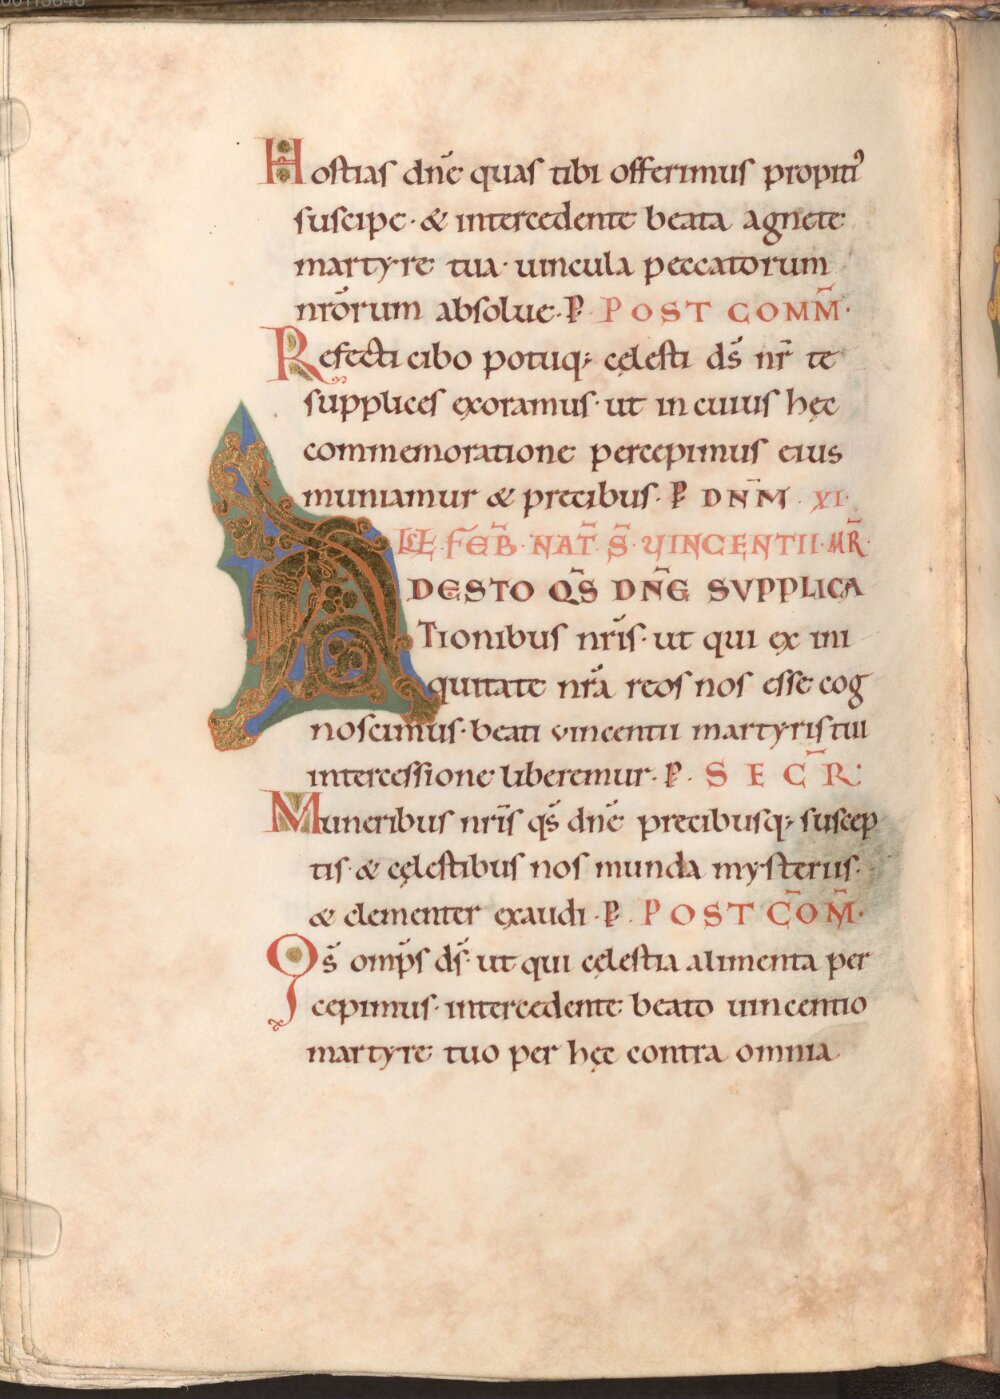 Hostias dn̄e quas tibi offerimus propitiꝰ
suscipe · & intercedente beata agnete
martyre tua · uincula peccatorum
nr̄orum absolue · P̄ POST COMM̄ ·
Refecti cibo potuq; cęlesti ds̄ nr̄ te
supplices exoramus · ut in cuius hęc
commemoratione percepimus eius
muniamur & precibus · P̄ DN̄M · XI ·
KL̄ · FEB̄ · NAT̄ · S̄ · VINCENTII · MR̄ ·
ADESTO QS̄ DN̄E SVPPLICA
Tionibus nrīs · ut qui ex ini
quitate nrā reos nos esse cog
noscimus · beati vincentii martyris tui
intercessione liberemur · P̄ · SECR̄ :
Muneribus nrīs qs̄ dn̄e precibusq; suscep
tis · & cęlestibus nos munda mysteriis ·
& clementer exaudi · P̄ · POST COM̄ ·
Qs̄ omps̄ ds̄ · ut qui cęlestia alimenta per
cepimus · intercedente beato uincentio
martyre tuo per hęc contra omnia